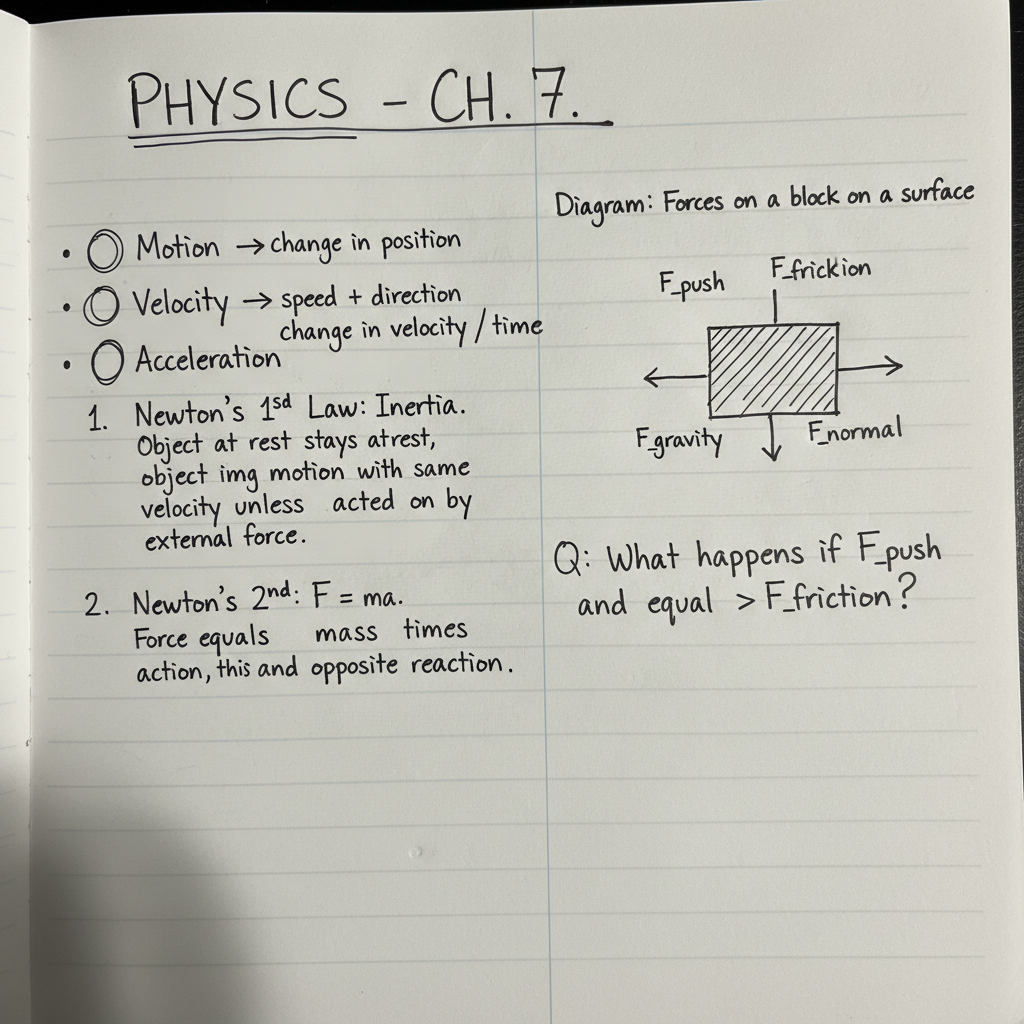 PHYSICS - CH. 7.
• Motion → change in position
• Velocity → speed + direction
change in velocity / time
• Acceleration
1. Newton's 1sd Law: Inertia.
Object at rest stays atrest,
object img motion with same
velocity unless acted on by
external force.
2. Newton's 2nd: F = ma.
Force equals mass times
action, this and opposite reaction.
Diagram: Forces on a block on a surface
F_push F_frickion
F_gravity F_normal
Q: What happens if F_push
and equal > F_friction?